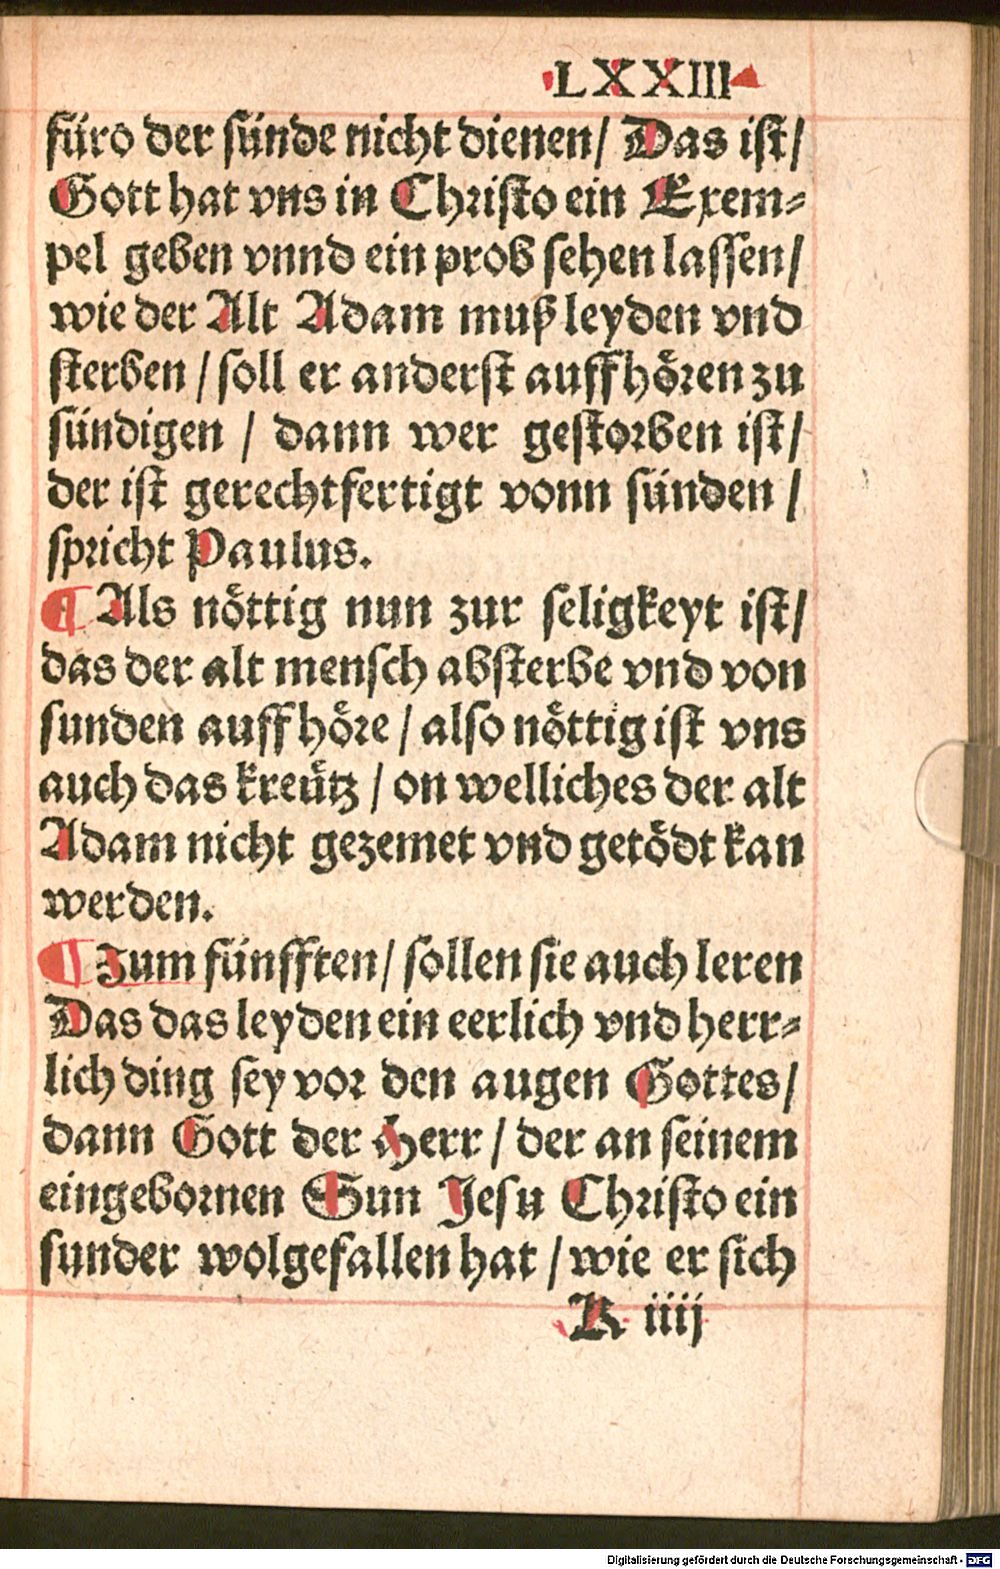 LXXIII
füro der sünde nicht dienen/ Das ist/
Gott hat vns in Christo ein Exem⸗
pel geben vnnd ein prob sehen lassen/
wie der Alt Adam muß leyden vnd
sterben / soll er anderst auffhören zu
sündigen / dann wer gestorben ist/
der ist gerechtfertigt vonn sünden /
spricht Paulus.
¶ Als nöttig nun zur seligkeyt ist/
das der alt mensch absterbe vnd von
sunden auffhöre / also nöttig ist vns
auch das kreütz / on welliches der alt
Adam nicht gezemet vnd getödt kan
werden.
¶ Zum fünfften/ sollen sie auch leren
Das das leyden ein eerlich vnd herr⸗
lich ding sey vor den augen Gottes/
dann Gott der Herr / der an seinem
eingebornen Sun Jesu Christo ein
sunder wolgefallen hat / wie er sich
K iiij
Digitalisierung gefördert durch die Deutsche Forschungsgemeinschaft - DFG